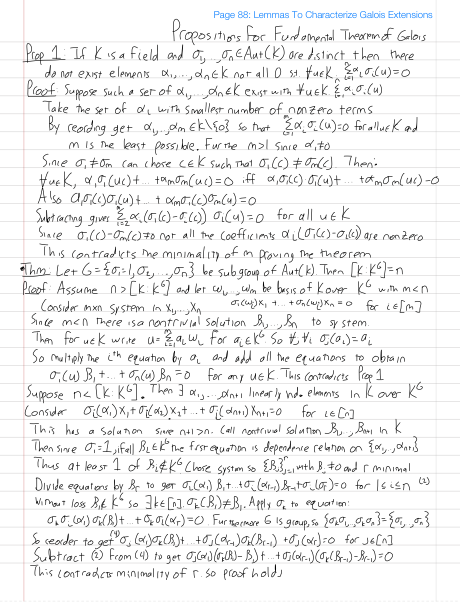 Page 88: Lemmas To Characterize Galois Extensions
Propositions For Fundamental Theorem of Galois
Prop 1: If K is a field and σ₁,…,σₙ∈Aut(K) are distinct then there
do not exist elements α₁,…,αₙ∈K not all 0 st. ∀u∈K, Σαᵢσᵢ(u)=0
Proof: Suppose such a set of α₁,…,αₙ∈K exist with ∀u∈K Σαᵢσᵢ(u)
Take the set of αᵢ with smallest number of nonzero terms
By reordering get α₁,…,αₘ∈K\{0} so that Σαᵢσᵢ(u)=0 for all u∈K and
m is the least possible. Further m>1 since α₁≠0
Since σ₁≠σₘ can chose c∈K such that σ₁(c)≠σₘ(c). Then:
∀u∈K, α₁σ₁(uc)+…+αₘσₘ(uc)=0 iff α₁σ₁(c)σ₁(u)+…+αₘσₘ(c)σₘ(u)=0
Also α₁σ₁(c)σ₁(u)+…+αₘσ₁(c)σₘ(u)=0
Subtracting gives Σαᵢ(σᵢ(c)-σ₁(c))σᵢ(u)=0 for all u∈K
Since σ₁(c)-σₘ(c)≠0 not all the coefficients αᵢ(σᵢ(c)-σ₁(c)) are nonzero
This contradicts the minimality of m proving the theorem
Thm: Let G={σ₁=1,σ₂,…,σₙ} be subgroup of Aut(K). Then [K:Kᴳ]=n
Proof: Assume n>[K:Kᴳ] and let w₁,…,wₘ be basis of K over Kᴳ with m<n
Consider mxn system in x₁,…,xₙ σ₁(wᵢ)x₁+…+σₙ(wᵢ)xₙ=0 for i∈[m]
Since m<n there is a nontrivial solution β₁,…,βₙ to system.
Then for u∈K write u=Σaᵢwᵢ for aᵢ∈Kᴳ So ∀i,∀j σⱼ(aᵢ)=aᵢ
So multiply the iᵗʰ equation by aᵢ and add all the equations to obtain
σ₁(u)β₁+…+σₙ(u)βₙ=0 for any u∈K. This contradicts Prop 1
Suppose n<[K:Kᴳ]. Then ∃ α₁,…,αₙ₊₁ linearly ind. elements in K over Kᴳ
Consider σᵢ(α₁)x₁+σᵢ(α₂)x₂+…+σᵢ(αₙ₊₁)xₙ₊₁=0 for i∈[n]
This has a solution since n+1>n. Call nontrivial solution β₁,…,βₙ₊₁ in K
Then since σ₁=1, if all βᵢ∈Kᴳ the first equation is dependence relation on {α₁,…,αₙ₊₁}
Thus at least 1 of βᵢ∉Kᴳ Chose system so {βⱼ}ʳⱼ₌₁ with βⱼ≠0 and r minimal
Divide equations by βᵣ to get σᵢ(α₁)β₁+…+σᵢ(αᵣ₋₁)βᵣ₋₁+σᵢ(αᵣ)=0 for 1≤i≤n (2)
Without loss β₁∉Kᴳ so ∃k∈[n]. σₖ(β₁)≠β₁. Apply σₖ to equation:
σₖσᵢ(α₁)σₖ(β₁)+…+σₖσᵢ(αᵣ)=0 Furthermore G is group, so {σₖσ₁,…,σₖσₙ}={σ₁,…,σₙ}
So reorder to get (4) σⱼ(α₁)σₖ(β₁)+…+σⱼ(αᵣ₋₁)σₖ(βᵣ₋₁)+σⱼ(αᵣ)=0 for j∈[n]
Subtract (2) From (4) to get σⱼ(α₁)(σₖ(β₁)-β₁)+…+σⱼ(αᵣ₋₁)(σₖ(βᵣ₋₁)-βᵣ₋₁)=0
This contradicts minimality of r. so proof holds